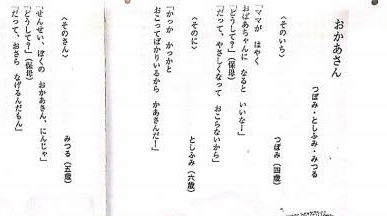 おかあさん
つぼみ・としふみ・みつる
〈そのいち〉
つぼみ（四歳）
「ママが はやく
おばあちゃんに なると いいなー」
「どうして？」（保母）
「だって、やさしくなって おこらないから」
〈そのに〉
としふみ（六歳）
「かっか かっかと
おこってばかりいるから かあさんだー」
〈そのさん〉
みつる（五歳）
「せんせい、ぼくの おかあさん、にんじゃ」
「どうして？」（保母）
「だって、おさら なげるんだもん」